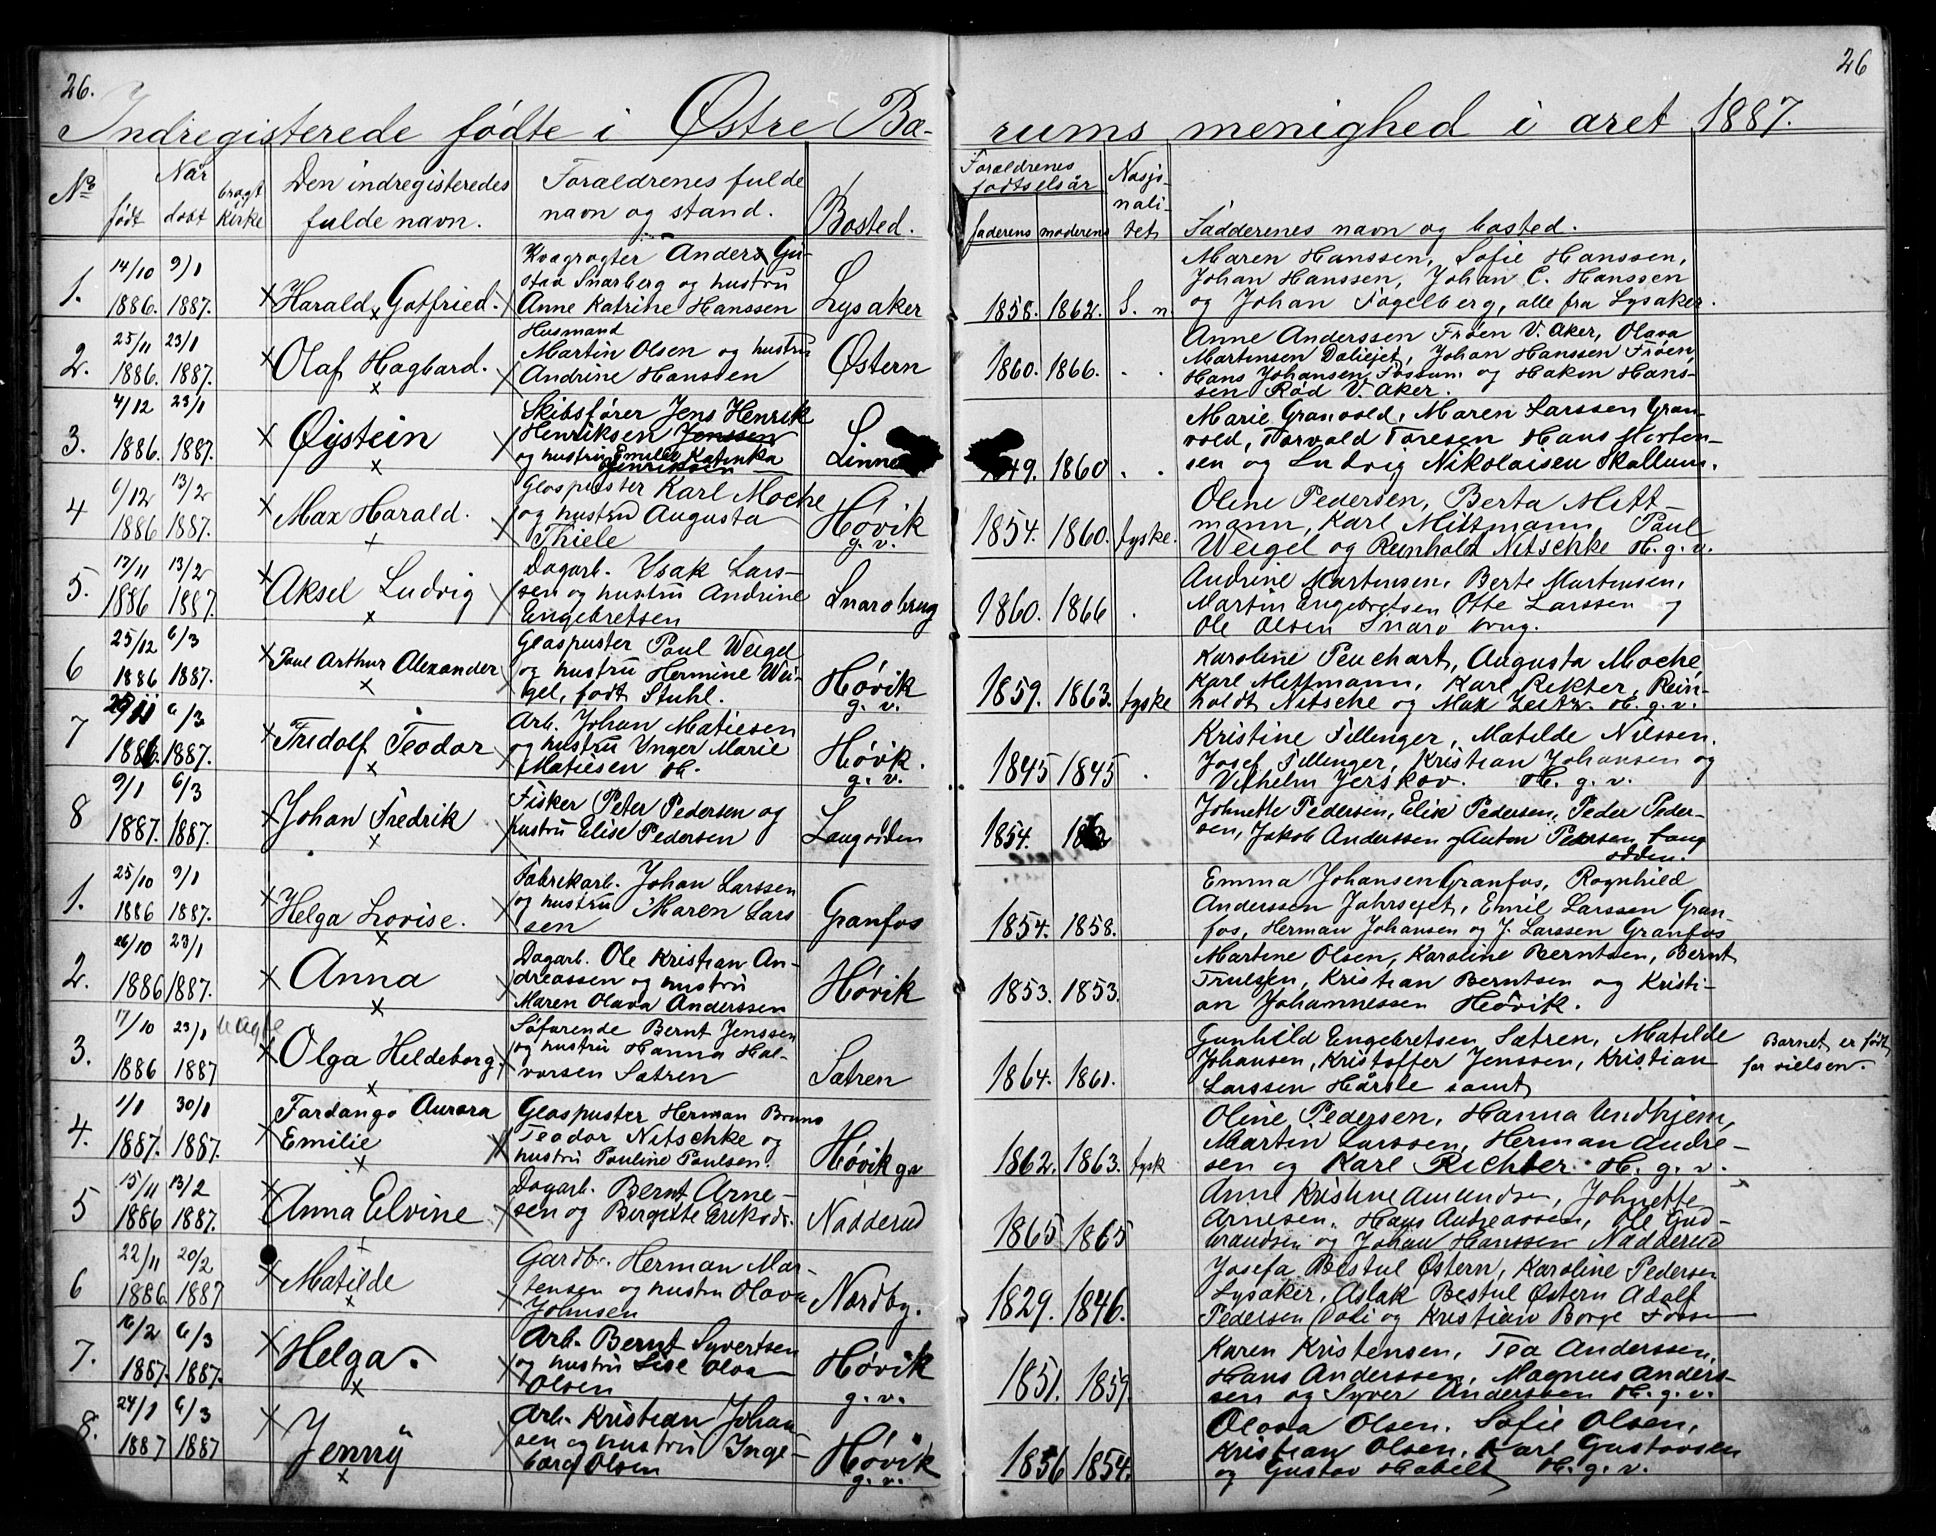 26.
26
Indregisterede fødte i Østre Bæ-
rums menighed i aret 1887.
No
Når
født
døbt
bragt kirke
Den indregisteredes
fulde navn.
Forældrenes fulde
navn og stand.
Bosted.
Forældrenes
fødtselsår
faderens moderens
Nasjo-
nali-
tet
Fadderenes navn og bosted.
1.
14/10 1886.
9/1 1887.
Harald Gotfried.
Kvægrøgter Anders Gu-
stav Snarberg og hustru
Anne Katrine Hanssen
Lysaker
1858. 1862. S. n.
Maren Hanssen, Sofie Hanssen,
Johan Hanssen, Johan C. Hanssen
og Johan Fogelberg, alle fra Lysaker.
2.
25/11 1886.
23/1 1887.
Olaf Hagbard.
Husmand
Martin Olsen og hustru
Andrine Hanssen
Østern
1860. 1866. . .
Anne Anderssen Frøen V. Aker, Olava
Martinsen Daliejet, Johan Hanssen Frøen,
Hans Johansen Fossum og Hakon Hans-
sen Rød V. Aker.
3.
4/12 1886.
23/1 1887.
Øystein
Skibsfører Jens Henrik
Henriksen Jenssen
og hustru Emilie Katinka
Henriksen
Linne
1849. 1860 . .
Marie Granvold, Maren Larssen Gran-
vold, Torvald Toresen Hans Morten-
sen og Ludvig Nikolaisen Skallum.
4
6/12 1886
13/2 1887.
Max Harald.
Glaspuster Karl Moche
og hustru Augusta
Thiele
Høvik
g. v.
1854. 1860. tyske.
Oline Pedersen, Berta Mitt-
mann, Karl Mittmann, Paul
Weigel og Reinhold Nitschke H. g. v.
5.
13/11 1886
13/2 1887.
Aksel Ludvig
Dagarb. Isak Lars-
sen og hustru Andrine
Engebretsen
Snarøbrug
1860. 1866 .
Andrine Martensen, Berte Martensen,
Martin Engebretsen Otte Larssen og
Ole Olsen Snarø brug.
6
25/12 1886
6/3 1887.
Paul Arthur Alexander
Glaspuster Paul Weigel
og hustru Hermine Wei-
gel, født Stuhl.
Høvik
g. v.
1859. 1863. tyske
Karoline Peuchart, Augusta Moche,
Karl Mittmann, Karl Rikter, Rein-
holdt Nitsche og Max Zeitz. H. g. v.
7
11 1886.
6/3 1887.
Fridolf Teodor
Arb. Johan Matiesen
og hustru Inger Marie
Matiesen H.
Høvik.
g. v.
1845 1845 .
Kristine Fillinger, Matilde Nilssen,
Josef Fillinger, Kristian Johansen og
Vilhelm Jerskov. H. g. v.
8
9/1 1887.
6/3 1887.
Johan Fredrik
Fisker Peter Pedersen og
hustru Elise Pedersen
Langodden
1854.
Johnette Pedersen, Elise Pedersen, Peder Peder-
sen, Jakob Anderssen og Anton Pedersen Lang
odden.
1.
25/10 1886
9/1 1887.
Helga Lovise.
Fabrikarb. Johan Larssen
og hustru Maren Lars
sen
Granfos
1854. 1858.
Emma Johansen Granfos, Ragnhild
Anderssen Jahrsejet, Emil Larssen Gran-
fos, Herman Johansen og J. Larssen Granfos
2.
26/10 1886
23/1 1887.
Anna
Dagarb. Ole Kristian An-
dreassen og hustru
Maren Olava Anderssen
Høvik
1853. 1853.
Martine Olsen, Karoline Berntsen, Bernt
Trulsen, Kristian Berntsen og Kristi-
an Johannessen Høvik.
3.
17/10 1886
23/1 1887
Olga Heldeborg
Søfarende Bernt Jenssen
og hustru Hanna Hal-
vorsen Sætren
Sætren
1864. 1861.
Gunhild Engebretsen Sætren, Matilde
Johansen, Kristoffer Jenssen, Kristian
Larssen Hårste samt
Barnet er født
før vielsen.
4.
1/1 1887.
30/1 1887.
Fardango Aurora
Emilie
Glaspuster Herman Bruno
Teodor Nitschke og
hustru Pauline Paulsen.
Høvik g v
1862. 1863. tysk
Oline Pedersen, Hanna Undhjem,
Martin Larssen, Herman Andre-
sen og Karl Richter. H. g. v.
5
15/11 1886
13/2 1887.
Anna Elvine
Dagarb. Bernt Arne-
sen og Birgitte Eriksdr.
Nadderud
1865 1865
Anne Kristine Amundsen, Johnette
Arnesen, Hans Andreassen, Ole Gud-
brandsen og Johan Hanssen Nadderud
6
22/11 1886
20/2 1887
Matilde
Gardbr. Herman Mar-
tensen og hustru Olava
Johnsen
Nordby.
1829. 1846.
Josefa Bestul Østern, Karoline Pedersen
Lysaker, Aslak Bestul Østern Adolf
Pedersen Dali og Kristian Borge
7.
16/2 1887.
6/3 1887.
Helga.
Arb. Bernt Syvertsen
og hustru Lise Olva
Olsen
Høvik
g. v.
1851. 1859.
Karen Kristensen, Tea Anderssen,
Hans Anderssen, Magnus Anders-
sen og Syver Anderssen H. g. v.
8.
24/1 1887
6/3 1887
Jenny
Arb. Kristian Johan
sen og hustru Inge-
borg Olsen
Høvik
g. v.
1856 1854.
Olava Olsen, Sofie Olsen,
Kristian Olsen, Karl Gustavsen
og Gustav Habelt H. g. v.